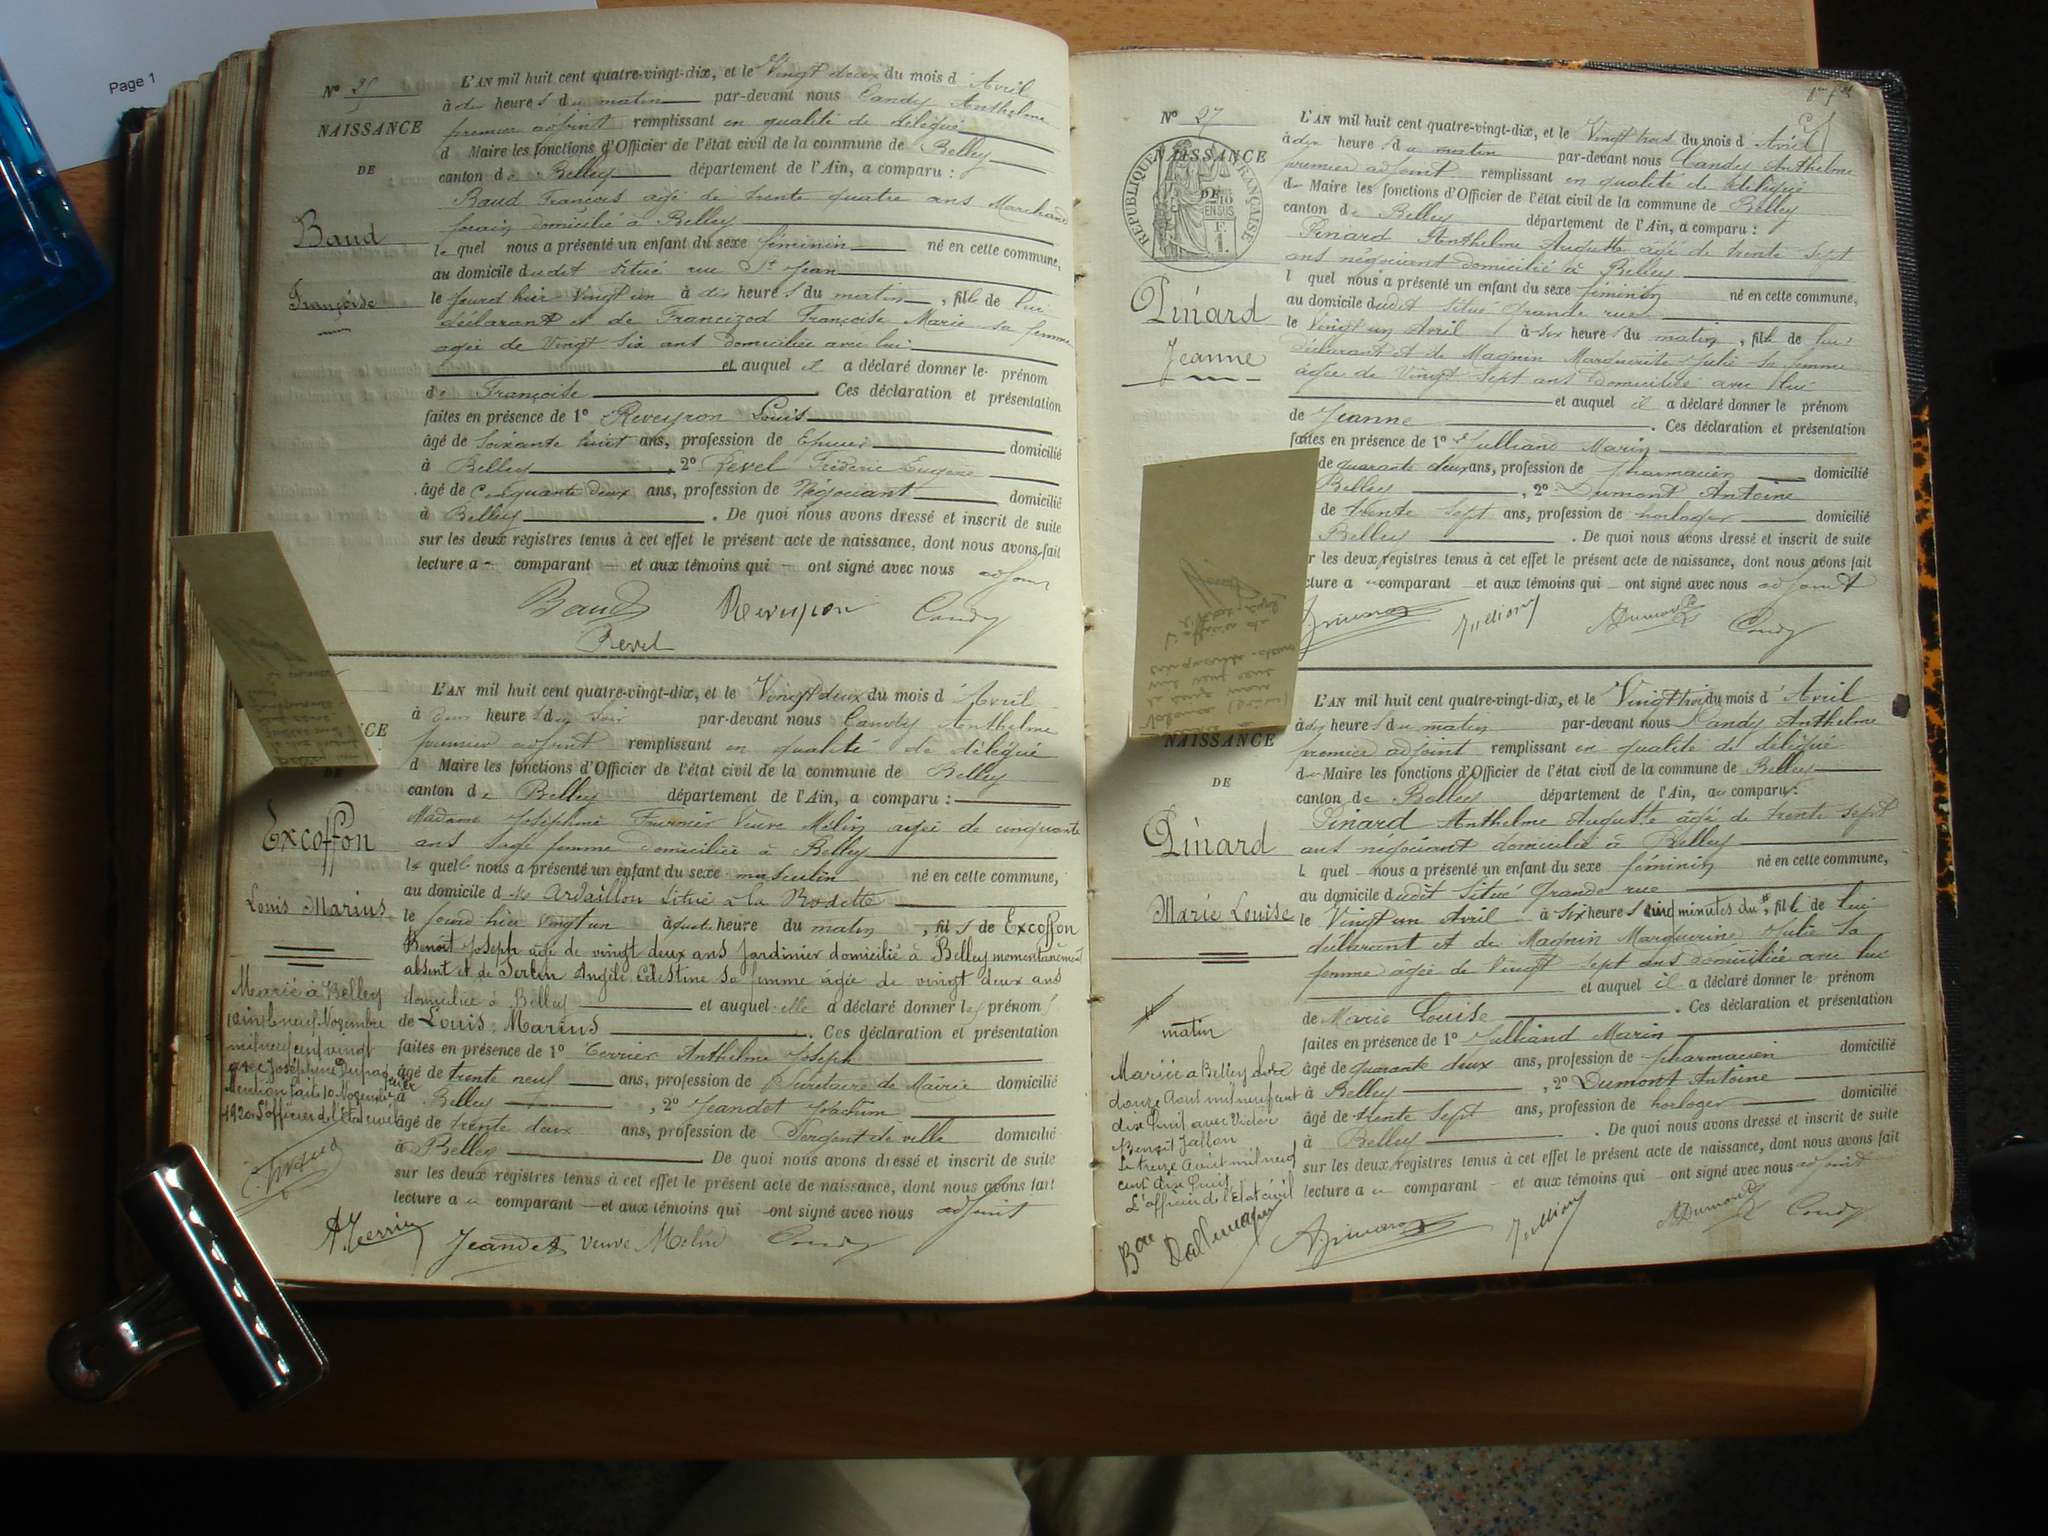 Page 1
N° 25
L'AN mil huit cent quatre-vingt-dix, et le Vingt deux du mois d'Avril
à dix heures du matin par-devant nous Candy Anthelme
premier adjoint remplissant en qualité de délégué
d Maire les fonctions d'Officier de l'état civil de la commune de Belley
canton de Belley département de l'Ain, a comparu :
Baud François agé de trente quatre ans Marchand
forain domicilié à Belley
lequel nous a présenté un enfant du sexe féminin né en cette commune,
au domicile dudit situé rue St Jean
le jourd hier Vingt un à dix heures du matin, fille de lui
déclarant et de Francizod Françoise Marie sa femme
agée de Vingt six ans domiciliée avec lui
et auquel il a déclaré donner le prénom
de Françoise. Ces déclaration et présentation
faites en présence de 1° Reveyron Louis
âgé de soixante huit ans, profession de domicilié
à Belley, 2° Revel Fréderic Eugène
âgé de Cinquante deux ans, profession de Négociant domicilié
à Belley. De quoi nous avons dressé et inscrit de suite
sur les deux registres tenus à cet effet le présent acte de naissance, dont nous avons fait
lecture au comparant et aux témoins qui ont signé avec nous adjoint
Baud Reveyron Candy
Revel
NAISSANCE
DE
Baud
Françoise
L'AN mil huit cent quatre-vingt-dix, et le Vingt deux du mois d'Avril
à heures du soir par-devant nous Candy Anthelme
premier adjoint remplissant en qualité de délégué
d Maire les fonctions d'Officier de l'état civil de la commune de Belley
canton de Belley département de l'Ain, a comparu :
Madame Joséphine Fournier Veuve Melin agée de cinquante
ans sage femme domiciliée à Belley
laquelle nous a présenté un enfant du sexe masculin né en cette commune,
au domicile de Mr Ardaillon situé à la Rodette
le jourd hier vingt un à quatre heure du matin, fils de Excoffon
Benoît Joseph agé de vingt deux ans Jardinier domicilié à Belley momentanément
absent et de Angèle Célestine sa femme âgée de vingt deux ans
domiciliée à Belley et auquel elle a déclaré donner les prénoms
de Louis Marius. Ces déclaration et présentation
faites en présence de 1° Terrier Anthelme Joseph
âgé de trente neuf ans, profession de Secrétaire de Mairie domicilié
à Belley, 2° Jeandet Joachim
âgé de trente deux ans, profession de Sergent de ville domicilié
à Belley. De quoi nous avons dressé et inscrit de suite
sur les deux registres tenus à cet effet le présent acte de naissance, dont nous avons fait
lecture au comparant et aux témoins qui ont signé avec nous adjoint
A. Terrier Jeandet veuve Melin Candy
CE
DE
Excoffon
Louis Marius
Marié à Belley
(Ain) le neuf Novembre
mil neuf cent vingt
avec Joséphine
Mention faite 10 Novembre
1920 L'officier de l'Etat civil
N° 27
L'AN mil huit cent quatre-vingt-dix, et le Vingt trois du mois d'Avril
à dix heures du matin par-devant nous Candy Anthelme
premier adjoint remplissant en qualité de délégué
du Maire les fonctions d'Officier de l'état civil de la commune de Belley
canton de Belley département de l'Ain, a comparu :
Pinard Anthelme Auguste agé de trente sept
ans négociant domicilié à Belley
l quel nous a présenté un enfant du sexe féminin né en cette commune,
au domicile dudit situé Grande rue
le Vingt un Avril à six heures du matin, fille de lui
déclarant et de Magnin Marguerite Julie sa femme
agée de Vingt sept ans domiciliée avec lui
et auquel il a déclaré donner le prénom
de Jeanne. Ces déclaration et présentation
faites en présence de 1° Julliand Marin
de quarante deux ans, profession de pharmacien domicilié
Belley, 2° Dumont Antoine
de trente sept ans, profession de horloger domicilié
Belley. De quoi nous avons dressé et inscrit de suite
r les deux registres tenus à cet effet le présent acte de naissance, dont nous avons fait
cture au comparant et aux témoins qui ont signé avec nous adjoint
Julliand ADumont Candy
NAISSANCE
DE
RÉPUBLIQUE FRANÇAISE
Pinard
Jeanne
L'AN mil huit cent quatre-vingt-dix, et le Vingt trois du mois d'Avril
à dix heures du matin par-devant nous Candy Anthelme
premier adjoint remplissant en qualité de délégué
du Maire les fonctions d'Officier de l'état civil de la commune de Belley
canton de Belley département de l'Ain, a comparu :
Pinard Anthelme Auguste agé de trente sept
ans négociant domicilié à Belley
l quel nous a présenté un enfant du sexe féminin né en cette commune,
au domicile dudit situé Grande rue
le Vingt un Avril à six heures cinq minutes du #, fille de lui
déclarant et de Magnin Marguerine Julie sa
femme âgée de Vingt sept ans domiciliée avec lui
et auquel il a déclaré donner le prénom
de Marie Louise. Ces déclaration et présentation
faites en présence de 1° Julliand Marin
âgé de quarante deux ans, profession de pharmacien domicilié
à Belley, 2° Dumont Antoine
âgé de trente sept ans, profession de horloger domicilié
à Belley. De quoi nous avons dressé et inscrit de suite
sur les deux registres tenus à cet effet le présent acte de naissance, dont nous avons fait
lecture au comparant et aux témoins qui ont signé avec nous adjoint
Julliand ADumont Candy
NAISSANCE
DE
Pinard
Marie Louise
# matin
Mariée a Belley le
douze Aout mil neuf cent
dix huit avec Victor
Benoit Jallon
Le treize Août mil neuf
cent dix huit
L'officier de l'Etat civil
Bon Dallemagne